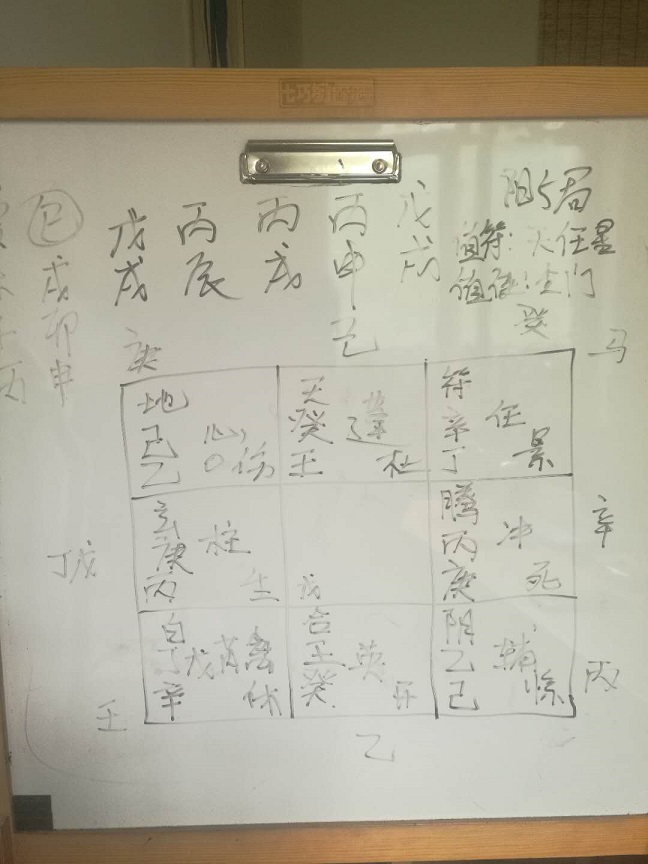 七巧板 Tangram
阳5局
戊 丙 丙 丙 戊
戌 辰 戌 申 戌
直符：天任星
值使：生门
癸
戌卯申
庚 己 马
地 心 天 蓬 符 任
己 〇 癸 辛
乙 伤 壬 杜 丁 景
丁戊 玄 柱 螣 冲 辛
庚 丙
丙 生 戊 庚 死
白 合 阴 辅
丁戊 芮禽 壬 英 乙
辛 休 癸 开 己 惊 丙
壬 乙